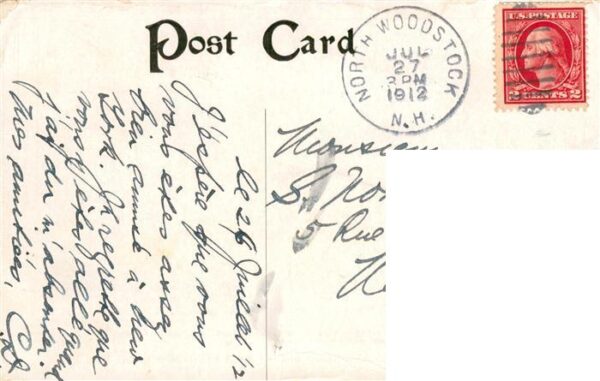 Post Card
NORTH WOODSTOCK
JUL
27
3 PM
1912
N.H.
U.S. POSTAGE
2 CENTS 2
le 26 Juillet 12
J'espère que vous
vous êtes assez
bien amusé à New
York. Je regrette que
vous y êtes allé quand
j'ai dû m'absenter.
Mes amitiés,
Monsieur
S.
5 Rue